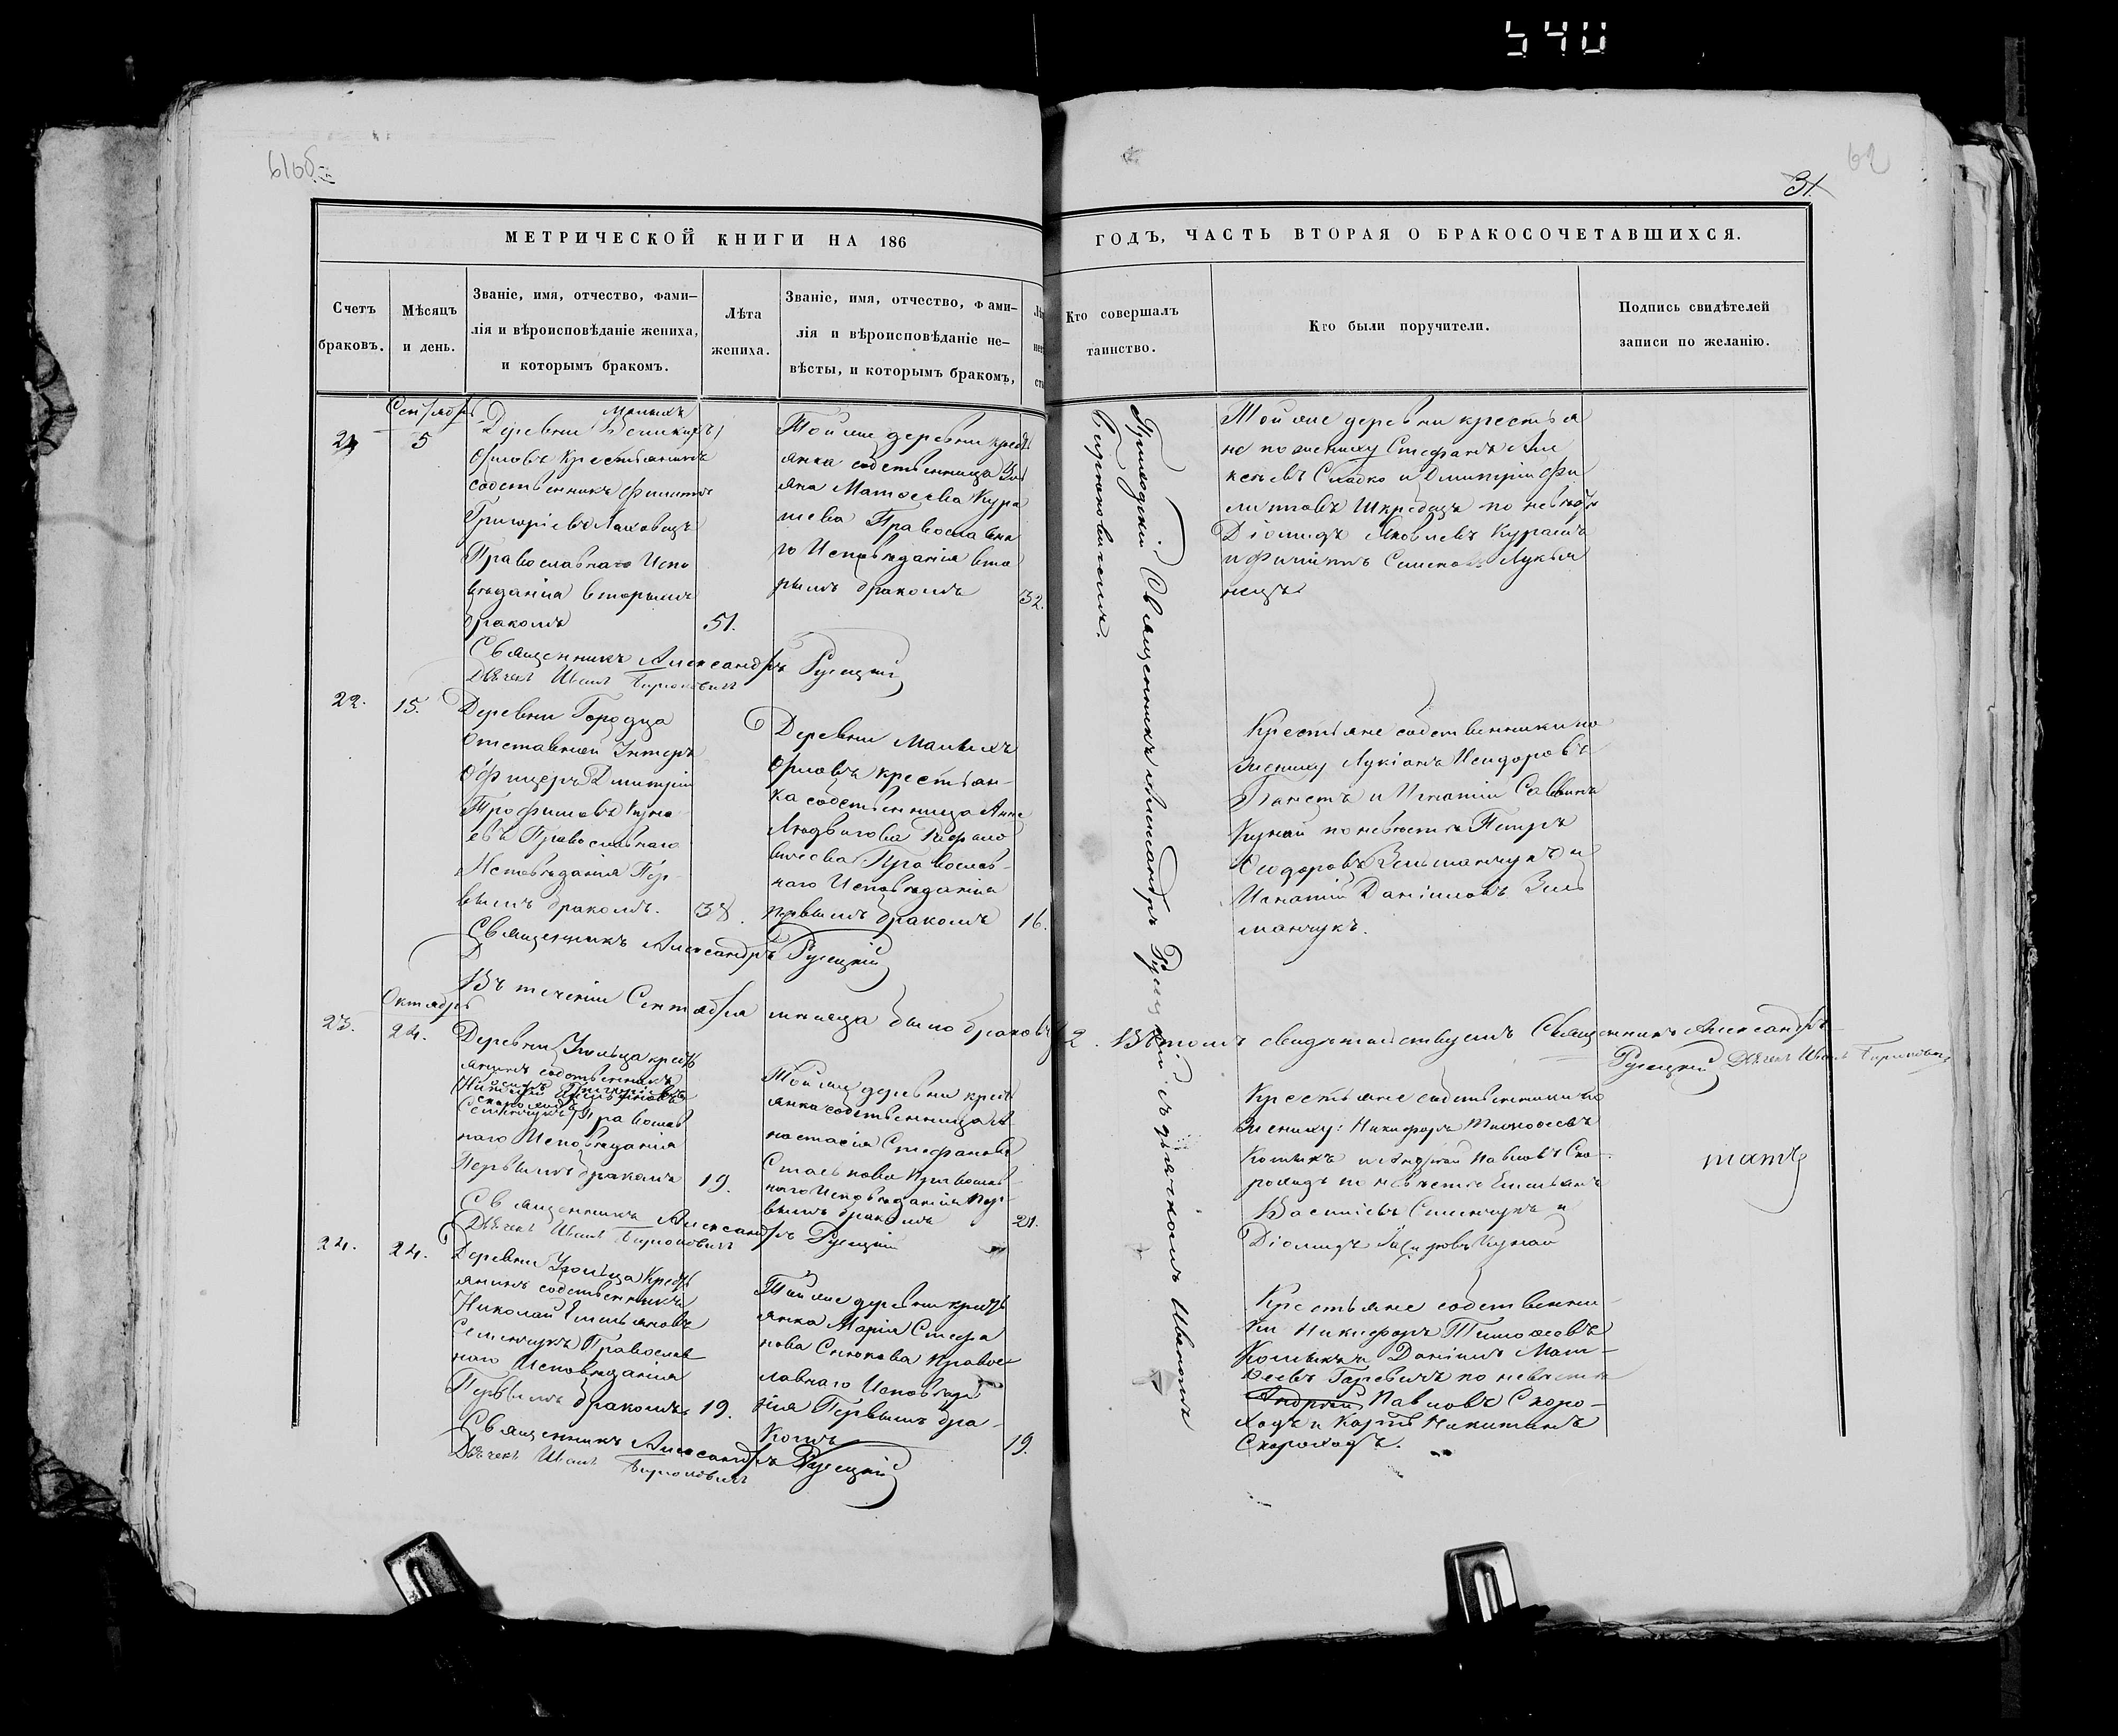 540
61об.
62
31.
МЕТРИЧЕСКОЙ КНИГИ НА 186
ГОДЪ, ЧАСТЬ ВТОРАЯ О БРАКОСОЧЕТАВШИХСЯ.
Счетъ
браковъ.
Мѣсяцъ
и день.
Званіе, имя, отчество, фами–
лія и вѣроисповѣданіе жениха,
и которымъ бракомъ.
Лѣта
жениха.
Званіе, имя, отчество, фами–
лія и вѣроисповѣданіе не–
вѣсты, и которымъ бракомъ,
Кто совершалъ
таинство.
Кто были поручители.
Подпись свидѣтелей
записи по желанію.
Сентябрь
5
Малыхъ
Деревни Великихъ
Орловъ Крестьянинъ
собственникъ Филиппъ
Григоріевъ
Православнаго Испо
вѣданія вторымъ
бракомъ
51.
Той же деревни крест
янка собственница
яна Матѳеева Кура
шева Православна
го Исповѣданія вто
рымъ бракомъ
32.
Приходскій Священникъ Александръ Ружицкій съ дьячкомъ Иваномъ
Бирюковичемъ.
Той же деревни крестья
не по жениху Стефанъ Але
ксѣевъ Сладко и Димитрій Фи
липповъ Шкредъ по невѣстѣ
Діомидъ Яковлевъ Курашъ
и Филиппъ Семеновъ Лукья
нецъ
Священникъ Александръ Ружицкій
Дьячекъ Иванъ Бирюковичъ
22.
15.
Деревни Городца
Отставной Унтеръ
Офицеръ Димитрій
Трофимовъ Куна
евъ Православнаго
Исповѣданія Пер–
вымъ бракомъ.
38.
Деревни Малыхъ
Орловъ крестьян–
ка собственница Анна
Людвигова Рафало
вичева Православ–
наго Исповѣданія
первымъ бракомъ
16.
Крестьяне собственники по
жениху Лукіанъ Исидоровъ
и Игнатій Саввинъ
Кунай по невѣстѣ Петръ
Ѳеодоровъ Зельманчукъ и
Игнатій Даніиловъ Зель
манчукъ.
Священникъ Александръ Ружицкій
Въ теченіи Сентября мѣсяца было браковъ 2. Въ томъ свидѣтельствуемъ Священникъ Александръ
Ружицкій Дьячекъ Иванъ Бирюковичъ
Октябрь
23.
24.
Деревни Угольца крест
янинъ собственникъ
Семенчукъ Православ
наго Исповѣданія
Первымъ бракомъ
19.
Той же деревни крест
янка собственница А
настасія Стефанова
Стаськова Православ–
наго Исповѣданія пер–
вымъ бракомъ
21.
Крестьяне собственники по
жениху: Никифоръ Тимоѳеевъ
Котыкъ и Андрей Павловъ Ско–
роходъ по невѣстѣ Емельянъ
Василіевъ Семенчукъ и
Діомидъ Кунай
Священникъ Александръ Ружицкій
Дьячекъ Иванъ Бирюковичъ
24.
24.
Деревни Угольца Крест
янинъ собственникъ
Николай Емельяновъ
Семенчукъ Православ
наго Исповѣданія
Первымъ бракомъ
19.
Той же деревни крест
янка Марія Стефа
нова Православ
лавнаго Исповѣда
нія Первымъ бра–
комъ
19.
Крестьяне собственни–
ки Никифоръ Тимоѳеевъ
Котыкъ и Даніилъ Мат–
ѳеевъ Гаревичъ по невѣстѣ
Андрей Павловъ Скоро–
ходъ и Карпъ Никитинъ
Скороходъ.
Священникъ Александръ Ружицкій
Дьячекъ Иванъ Бирюковичъ